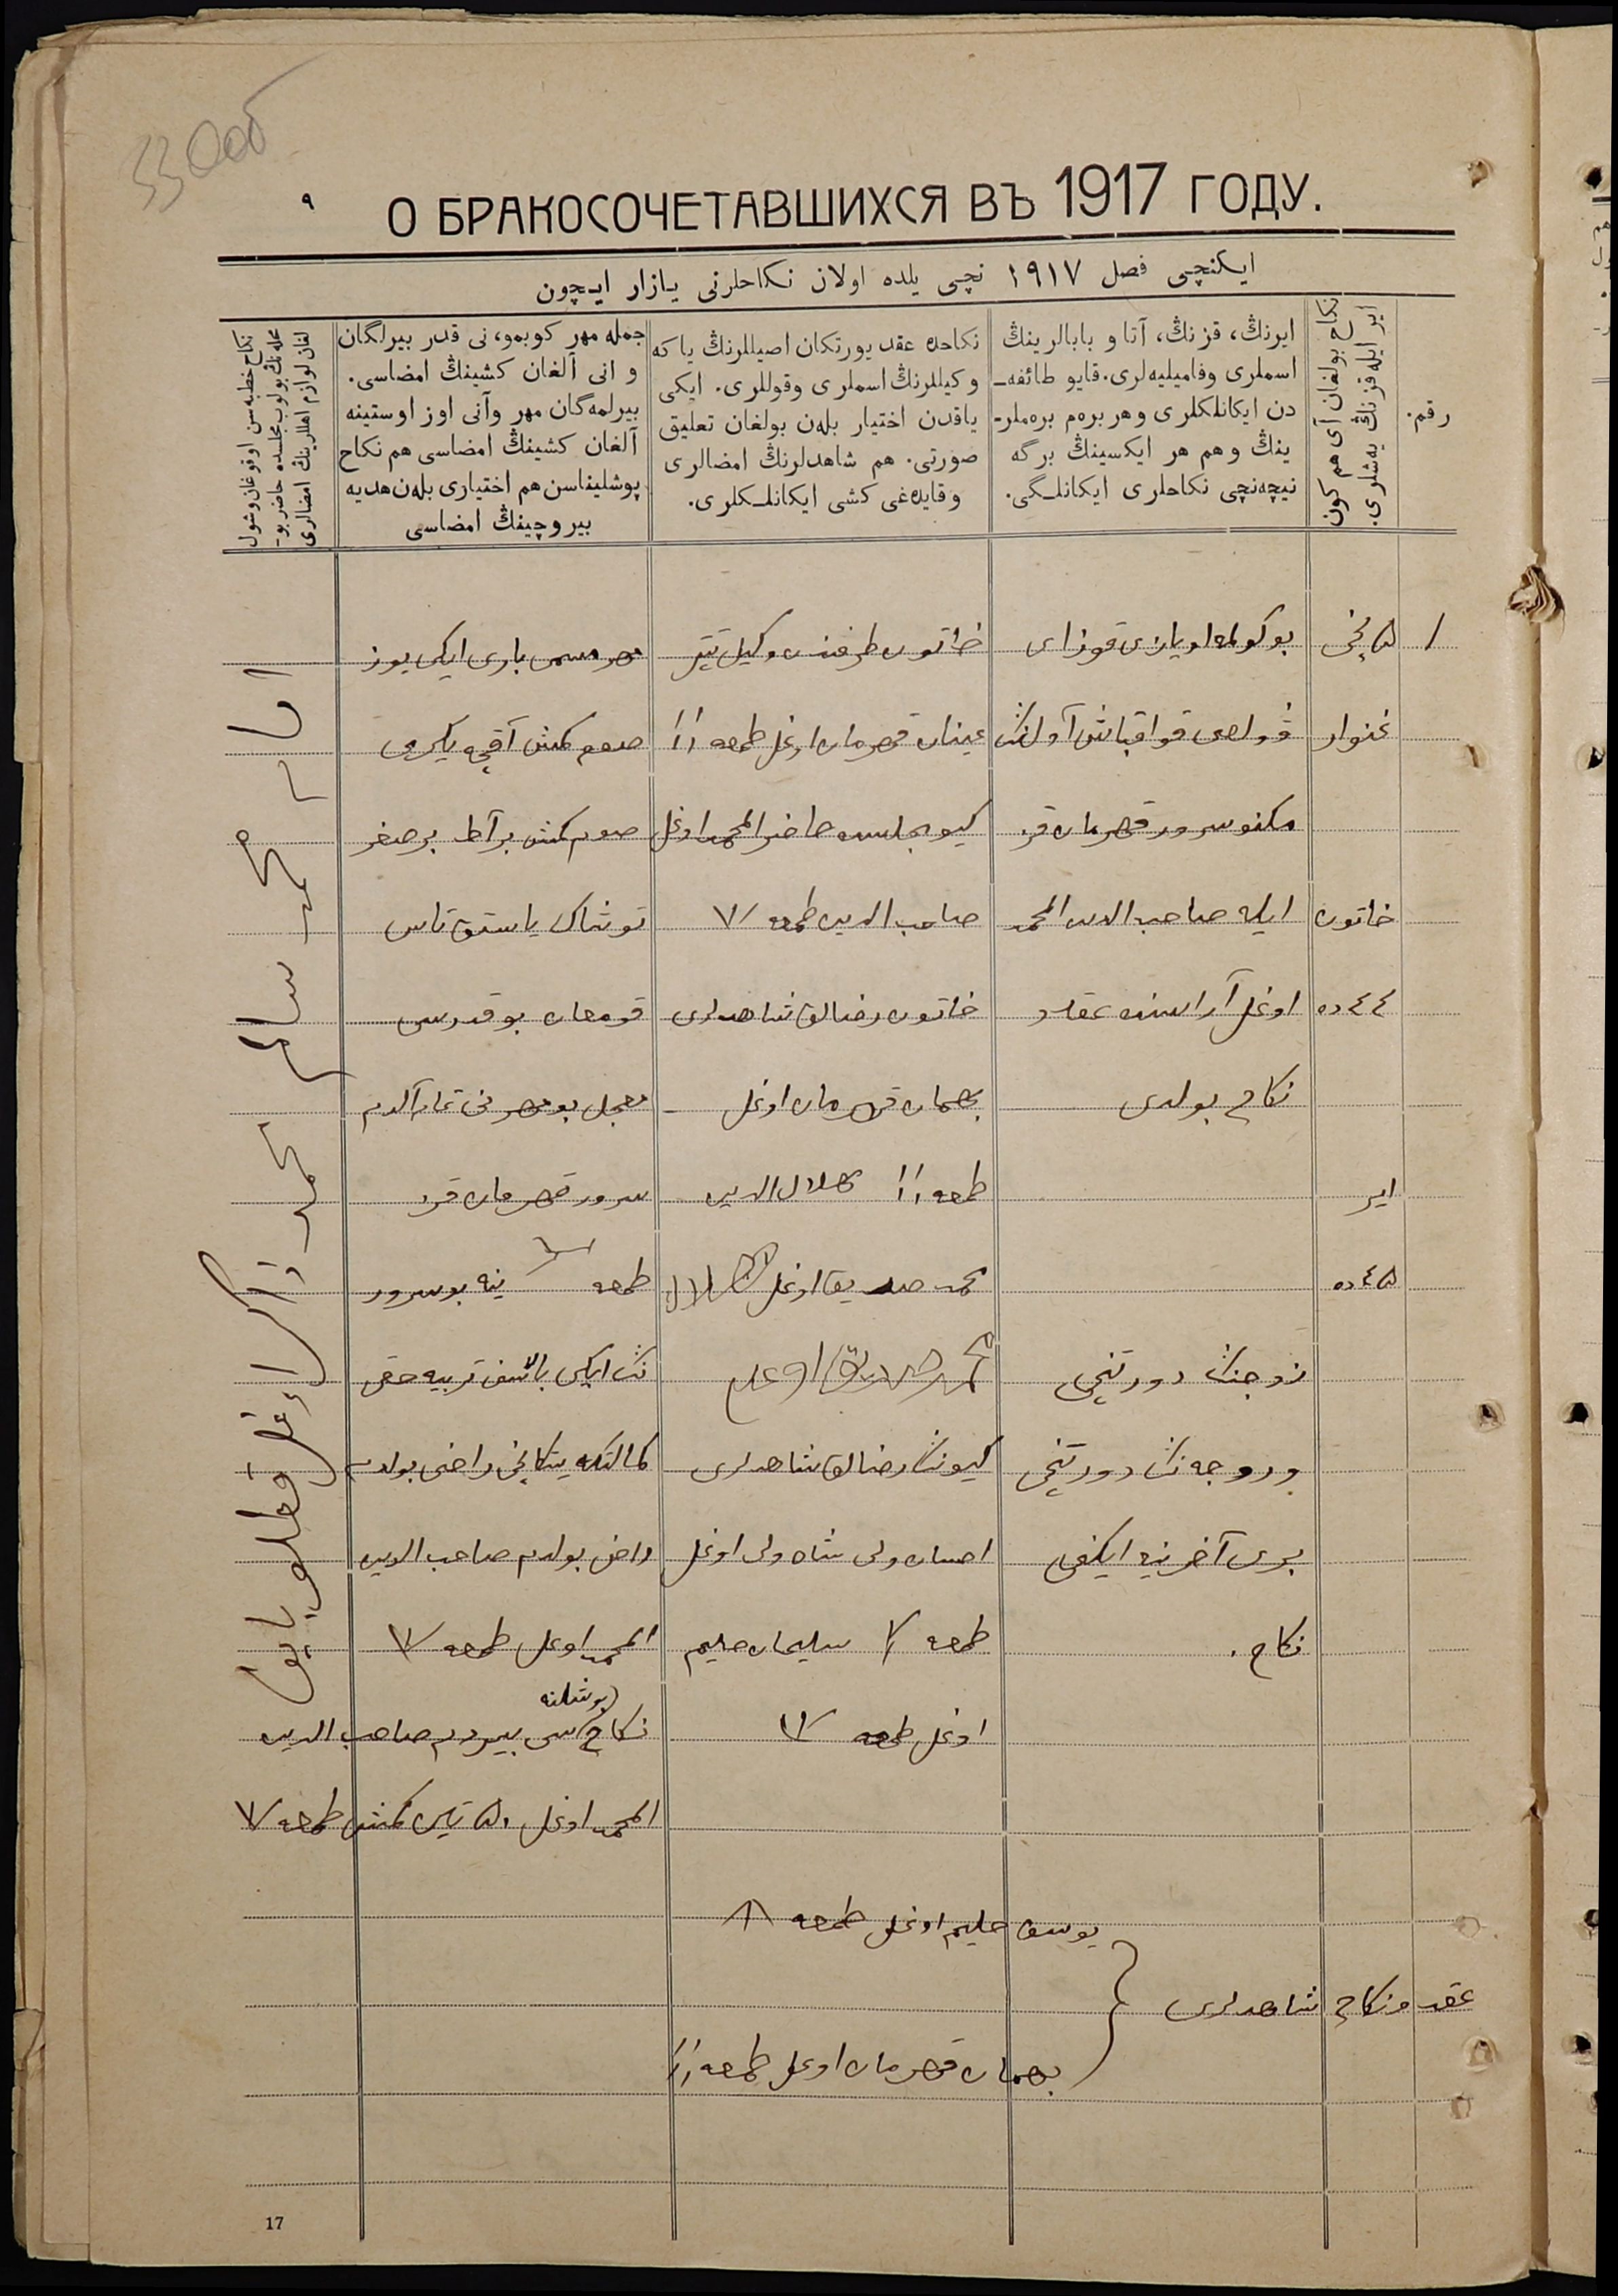 33 Ооб
٩
О БРАКОСОЧЕТАВШИХСЯ ВЪ 1917 ГОДУ.
ايكنچی فصل ١٩١٧ نچی يلده اولان نكاحلرنی يازار ايچون
رقم.
نكاح بولغان آی هم كون
اير ايله قزنڭ يه‌شلری.
ايرنڭ، قزنڭ، آتا و بابالرينڭ
اسملری وفاميليه‌لری. قايو طائفه‌ـ
دن ايكانلكلری و هر بره‌م بره‌ملرـ
ينڭ و هم هر ايكسينڭ برگه
نيچه‌نچی نكاحلری ايكانلـگی.
نكاحده عقد يورتكان اصيللرنڭ ياكه
وكيللرنڭ اسملری وقوللری. ايكی
ياقدن اختيار بله‌ن بولغان تعليق
صورتی. هم شاهدلرنڭ امضالری
وقايده‌غی كشی ايكانلـكلری.
جمله مهر كوبمو، نی قدر بيرلگان
و انی آلغان كشينڭ امضاسی.
بيرلمه‌گان مهر وآنی اوز اوستينه
آلغان كشينڭ امضاسی هم نكاح
پوشليناسن هم اختياری بله‌ن هديه
بيروچينڭ امضاسی
نكاح خطبه‌سن اوقوغان وشول
محله‌نڭ بولوب مجلسده حاضر بوـ
لغان لوازم اهللرينڭ امضالری
١
٥ نچی
غنوار
خاتون
٤٤ ده
اير
٤٥ ده
بوكولمه اويازی قوزای
ڤولصی قواقباش آولنڭ
مكنو سرور قهرمان قز
ايله صاحب الدين المحمد
اوغل آراسنده عقد و
نكاح بولدی
زوجنڭ دورتنچی
وزوجه نڭ دورتنچی
بری آخرينه ايكنچی
نكاح.
خاتون طرفندن وكيل تيتر
عينان قهرمان اوغل طمغه ١١
كيو مجلسده حاضر المحمد اوغل
صاحب الدين طمغه
خاتون رضالق شاهدلری
بهمان قهرمان اوغل
طمغه ١١ هلال الدين
محمد صديق اوغل
محمد صديق اوغل
كيونڭ رضالق شاهدلری
احسان ولی شاه ولی اوغل
طمغه سليمان حليم
اوغل طمغه
مهر مسمی باری ايكی يوز
صوم كمش آقچه يگرمی
صوم كمش بر آط بر صغر
توشاك ياستق تاس
قومغان بو قدرسی
معجل بو مهر نی تمام آلدم
سرور قهرمان قز
طمغه ينه بو سرور
نڭ ايكی بالاسن تربيه حقی
كمالتكه يتكانچی راضی بولدم
راضی بولدم صاحب الدين
المحمد اوغل طمغه
پوشلنه
نكاح سی بيردم صاحب الدين
المحمد اوغل ٥٠ تين كمش طمغه
امام محمد سليم محمد ذاكر اوغل قطلوبايف
يوسف حليم اوغل طمغه
عقد و نكاح شاهدلری
بهمان قهرمان اوغل طمغه ١١
17